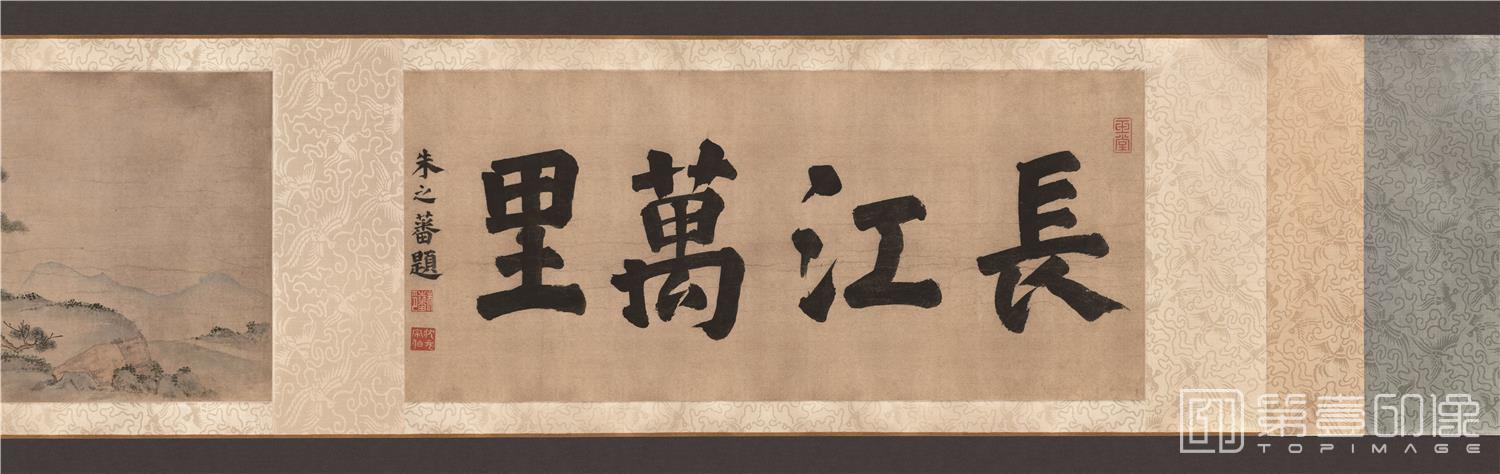 長江萬里
朱之蕃題
玉堂
第壹印像
TOPIMAGE